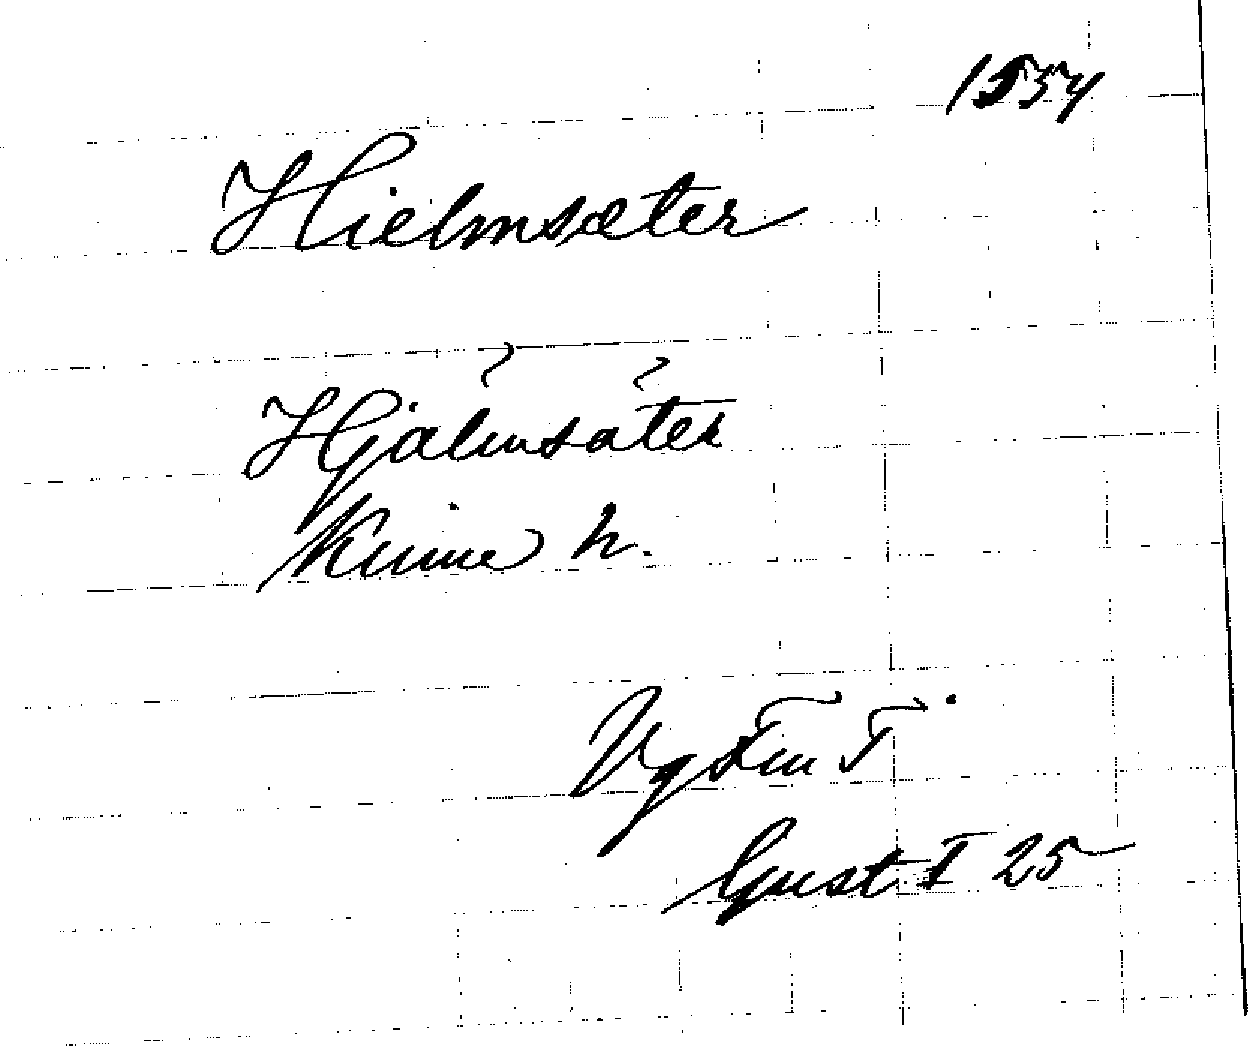 1554
Hielmsæter
Hjälmsäter
Kinne h.
Gust I 25